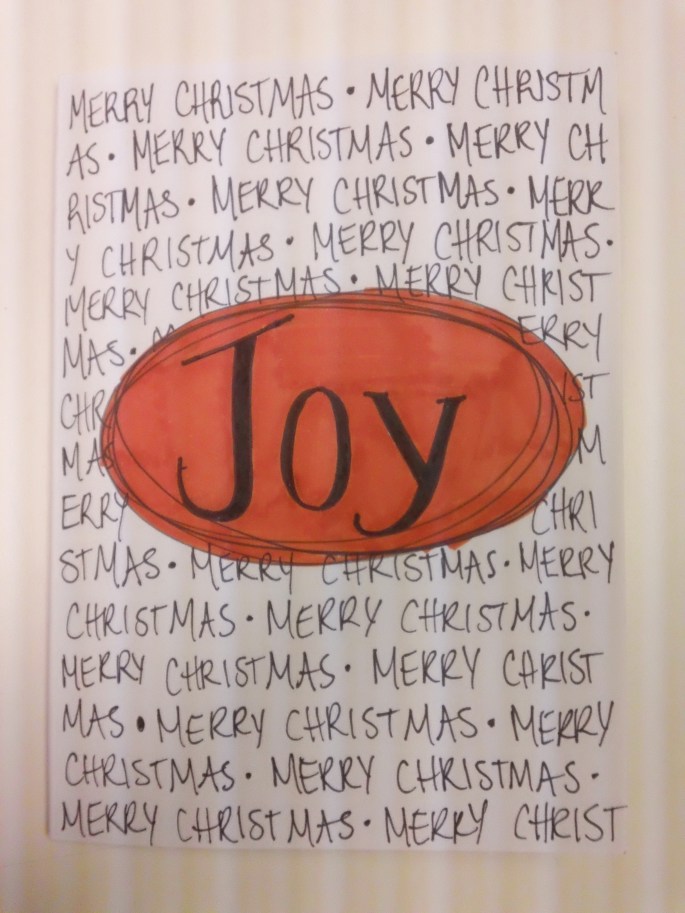 MERRY CHRISTMAS • MERRY CHRISTM
AS • MERRY CHRISTMAS • MERRY CH
RISTMAS • MERRY CHRISTMAS • MERR
Y CHRISTMAS • MERRY CHRISTMAS •
MERRY CHRISTMAS • MERRY CHRIST
MAS • M ERRY
CHR IST
MAS M
ERRY CHRI
Joy
STMAS • MERRY CHRISTMAS • MERRY
CHRISTMAS • MERRY CHRISTMAS •
MERRY CHRISTMAS • MERRY CHRIST
MAS • MERRY CHRISTMAS • MERRY
CHRISTMAS • MERRY CHRISTMAS •
MERRY CHRISTMAS • MERRY CHRIST